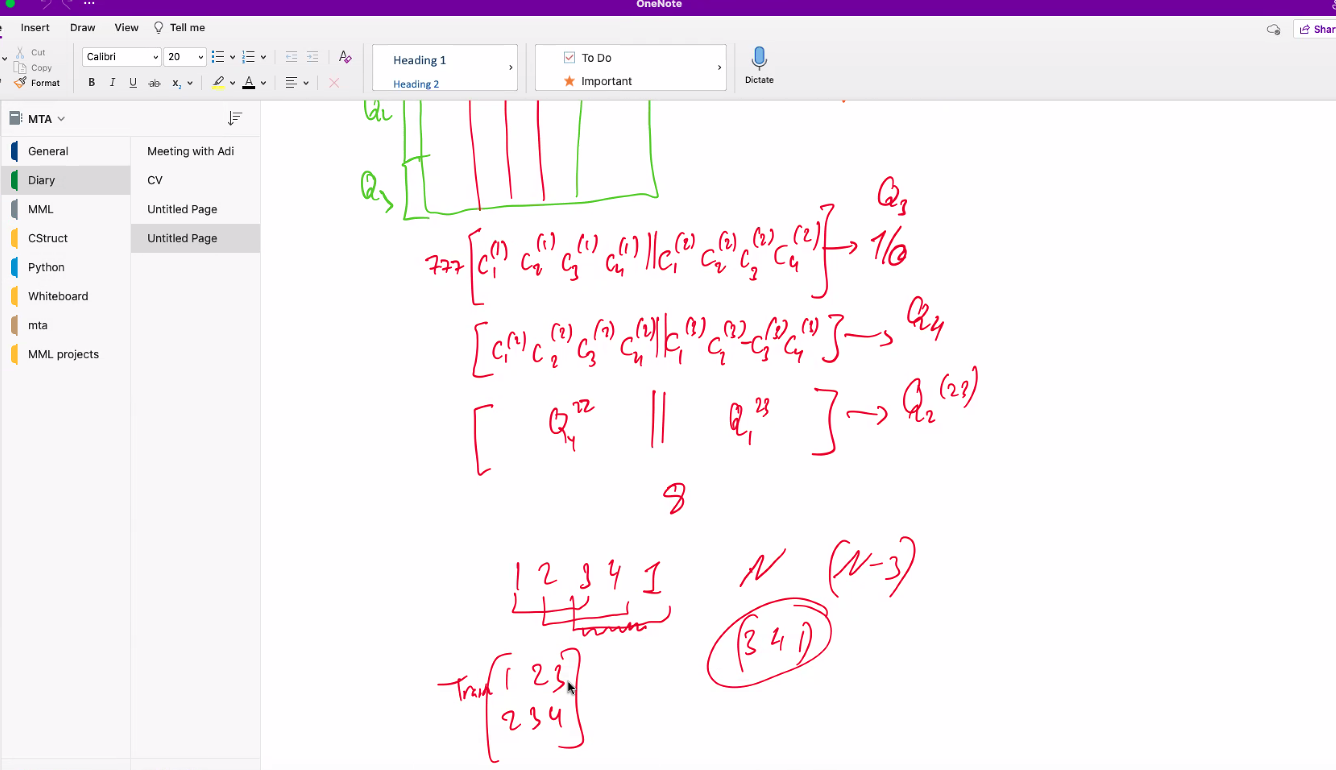 OneNote
Insert Draw View Tell me
Share
Cut
Copy
Format
Calibri 20
B I U ab x A
Heading 1
Heading 2
To Do
Important
Dictate
MTA
General
Diary
MML
CStruct
Python
Whiteboard
mta
MML projects
Meeting with Adi
CV
Untitled Page
Untitled Page
Q₃
Q₃
777 [C₁⁽¹⁾ C₂⁽¹⁾ C₃⁽¹⁾ C₄⁽¹⁾ || C₁⁽²⁾ C₂⁽²⁾ C₃⁽²⁾ C₄⁽²⁾] → 1/0
[C₁⁽²⁾ C₂⁽²⁾ C₃⁽²⁾ C₄⁽²⁾ || C₁⁽³⁾ C₂⁽³⁾ C₃⁽³⁾ C₄⁽³⁾] → Q₄
[Q₄²² || Q₁²³] → Q₂⁽²³⁾
8
1 2 3 4 1 N (N-3)
(3 4 1)
Train [1 2 3
2 3 4]